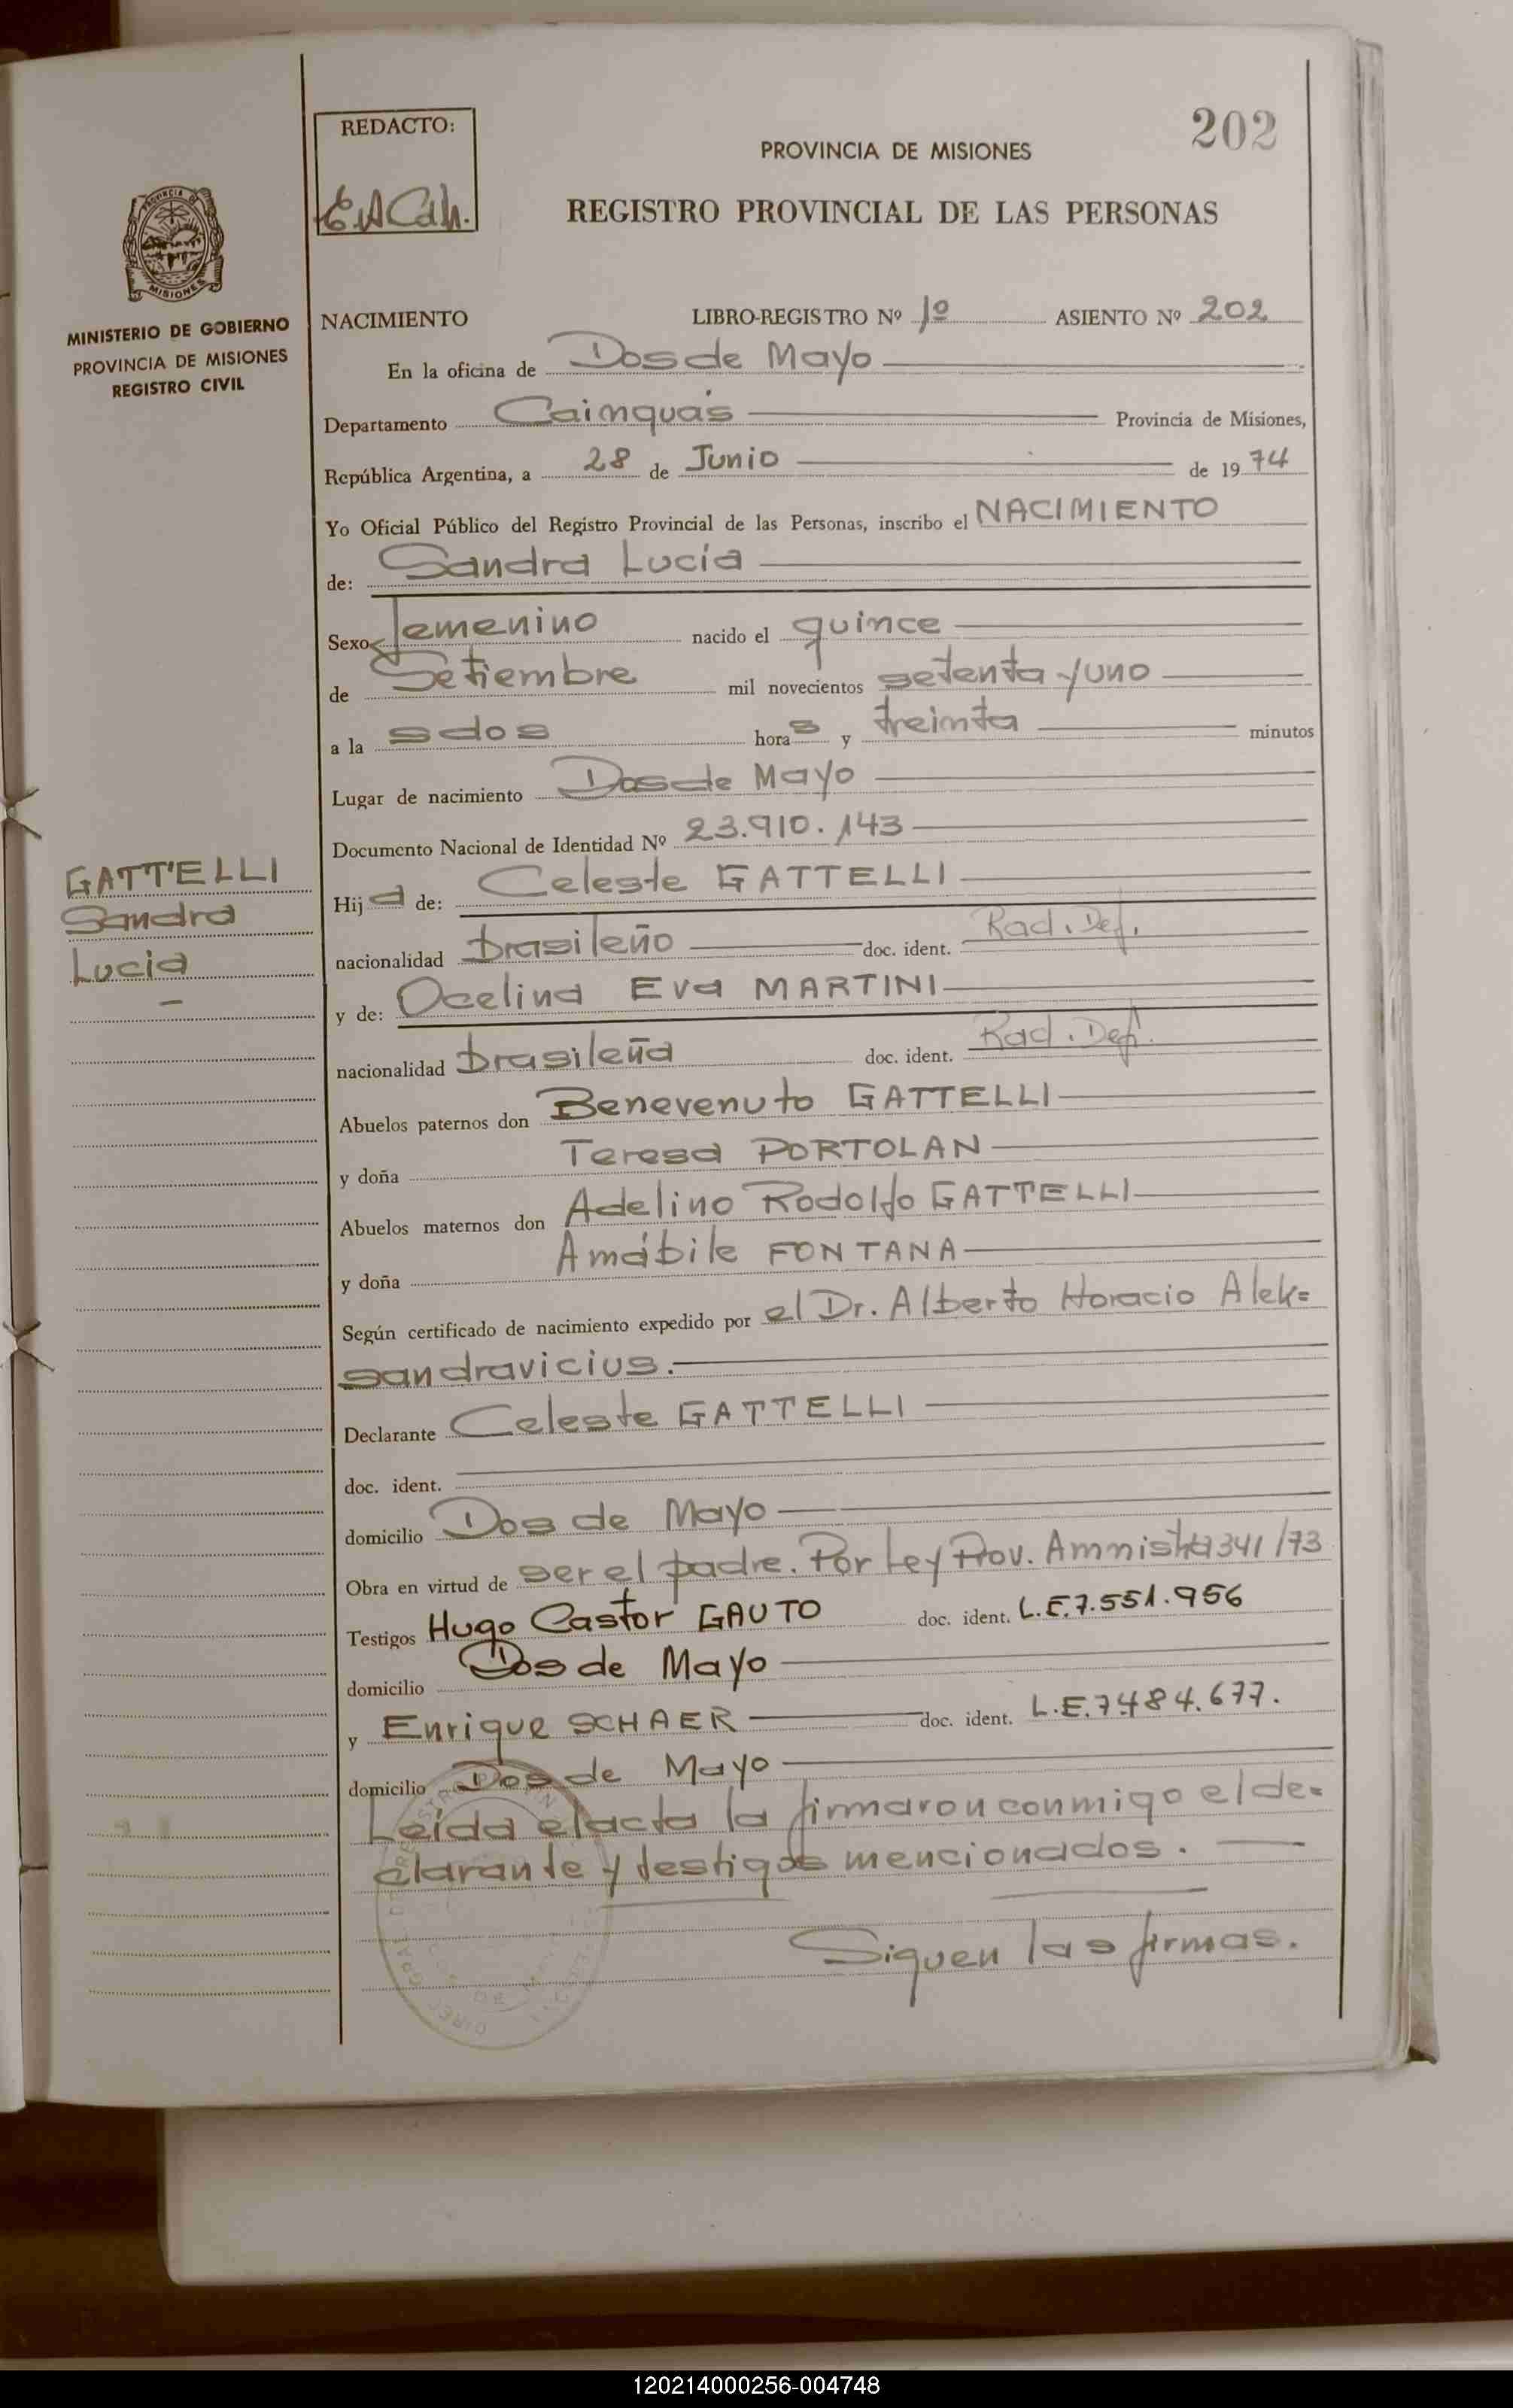 202
REDACTO:
PROVINCIA DE MISIONES
REGISTRO PROVINCIAL DE LAS PERSONAS
PROVINCIA
MISIONES
MINISTERIO DE GOBIERNO
PROVINCIA DE MISIONES
REGISTRO CIVIL
NACIMIENTO LIBRO-REGISTRO Nº 1º ASIENTO Nº 202
En la oficina de Dos de Mayo
Departamento Cainguás Provincia de Misiones,
República Argentina, a 28 de Junio de 1974
Yo Oficial Público del Registro Provincial de las Personas, inscribo el NACIMIENTO
de: Sandra Lucía
Sexo femenino nacido el quince
de Setiembre mil novecientos setenta y uno
a la s dos hora s y treinta minutos
Lugar de nacimiento Dos de Mayo
Documento Nacional de Identidad Nº 23.910.143
GATTELLI
Sandra
Lucia
Hij a de: Celeste GATTELLI
nacionalidad brasileño doc. ident. Rad. Def.
y de: Ocelina Eva MARTINI
nacionalidad brasileña doc. ident. Rad. Def.
Abuelos paternos don Benevenuto GATTELLI
y doña Teresa PORTOLAN
Abuelos maternos don Adelino Rodolfo GATTELLI
y doña Amábile FONTANA
Según certificado de nacimiento expedido por el Dr. Alberto Horacio Alek=
sandravicius.
Declarante Celeste GATTELLI
doc. ident.
domicilio Dos de Mayo
Obra en virtud de ser el padre. Por Ley Prov. Amnistia 341/73
Testigos Hugo Castor GAUTO doc. ident. L.E.7.551.956
domicilio Dos de Mayo
y Enrique SCHAER doc. ident. L.E.7.484.677.
domicilio Dos de Mayo
Leída el acta la firmaron conmigo el de=
clarante y testigos mencionados.
Siguen las firmas.
120214000256-004748